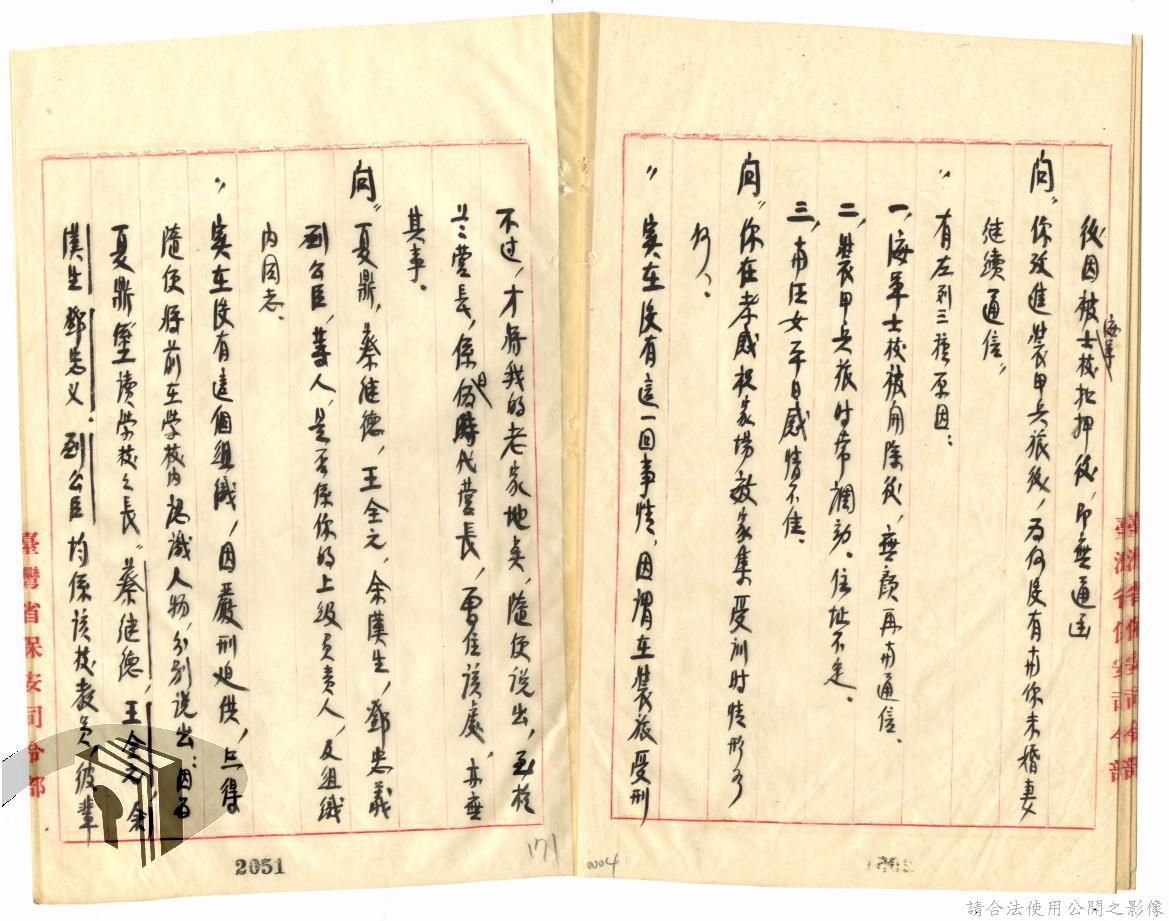 後因被海軍士校扣押後，即無通函
問〃你改進裝甲兵旅後，為何沒有與你未婚妻
継續通信，
〃有左列三種原因：
一，海軍士校被開除後，無顏再與通信、
二，裝甲兵旅时常調動、住址不定、
三，與汪女平日感情不佳。
問〃你在孝感祝家場敵家集受訓时情形如
何？、
〃実在沒有這一回事情，因謂在裝旅受刑
不过，才將我的老家地点，隨便說出，至於
營長，係偽時代營長，曾住該處，亦無
其事。
問〃夏鼎，蔡継德，王全之，余漢生，鄧忠義
到公臣，等人，是否係你的上級負責人，及組織
内同志。
〃実在沒有這個組織，因嚴刑迫供，只得
隨便將前在學校内認識人物，分別說出：因為
夏鼎係讀學校之長〃蔡継德，王全之，余
漢生 鄧忠义、到公臣均係該校教員，彼輩
臺灣省保安司令部
臺灣省保安司令部
2051
171
0004
請合法使用公開之影像